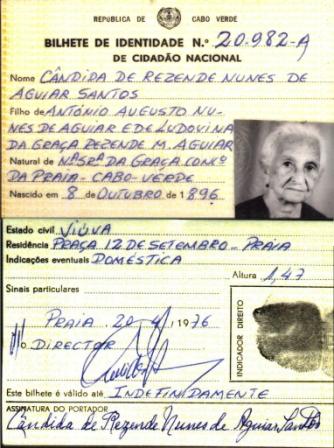 REPÚBLICA DE CABO VERDE
BILHETE DE IDENTIDADE N.º 20.982-A
DE CIDADÃO NACIONAL
Nome CÂNDIDA DE REZENDE NUNES DE
AGUIAR SANTOS
Filho de ANTÓNIO AUGUSTO NU-
NES DE AGUIAR E DE LUDOVINA
DA GRAÇA REZENDE M. AGUIAR
Natural de Nª SRª DA GRAÇA CONCº
DA PRAIA - CABO-VERDE
Nascido em 8 de OUTUBRO de 1896
Estado civil VIÚVA
Residência PRAÇA 12 DE SETEMBRO - PRAIA
Indicações eventuais DOMÉSTICA
Altura 1,47
Sinais particulares
PRAIA 20-4/1976
O DIRECTOR
INDICADOR DIREITO
Este bilhete é válido até INDEFINIDAMENTE
ASSINATURA DO PORTADOR
Cândida de Rezende Nunes de Aguiar Santos